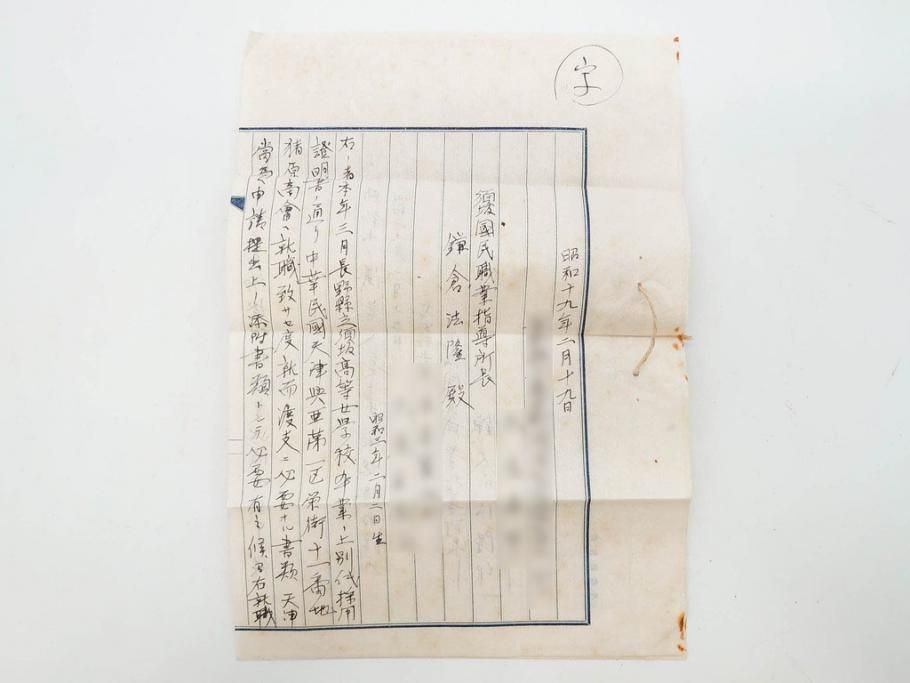 字
昭和十九年二月十九日
須坂國民職業指導所長
鎌倉法隆殿
昭和二年二月二日生
右ノ者本年三月長野縣立須坂高等女學校卒業ノ上別紙採用
證明書ノ通リ中華民國天津興亜第一區栄街十一番地
猪原商會ヘ就職致サセ度就而渡支ニ必要ナル書類
當局申請提出上ノ添附書類トシテ必要有之候ニ右就職